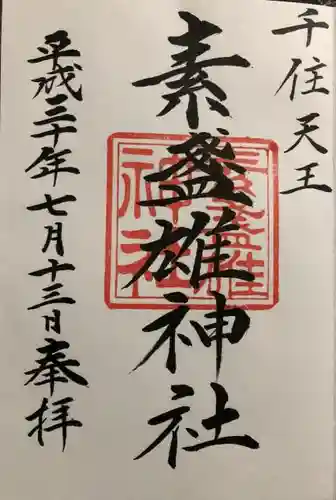 千住天王
素盞雄神社
平成三十年七月十三日奉拝
素盞雄
神社